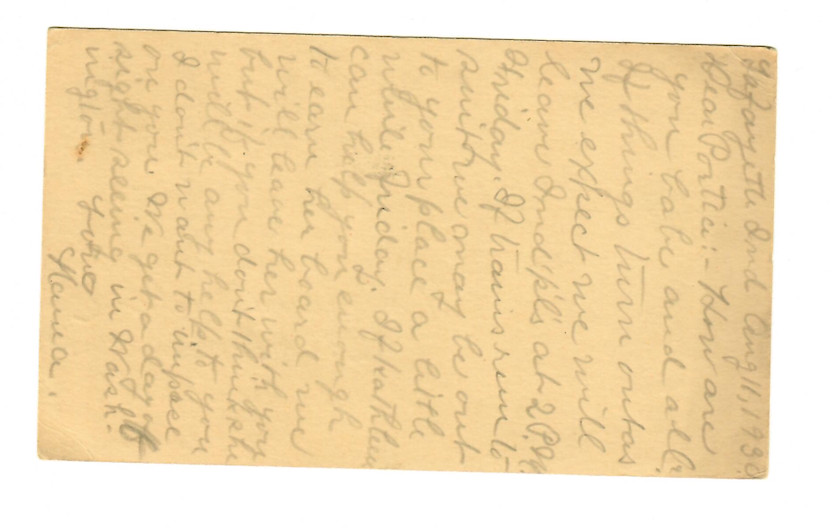 Lafayette Ind Aug 11, 193
Dear Portia:- How are
you babe and all.
If things turn out as
we expect we will
leave Ind'pl's at 2 P.M.
Friday. If trains run to
suit we may be out
to your place a little
while Friday. If Kathleen
can help you enough
to earn her board we
will leave her with you
but if you don't think she
will be any help to you
I don't want to impose
on you. We get a day of
sight seeing in Wash-
ington. Love